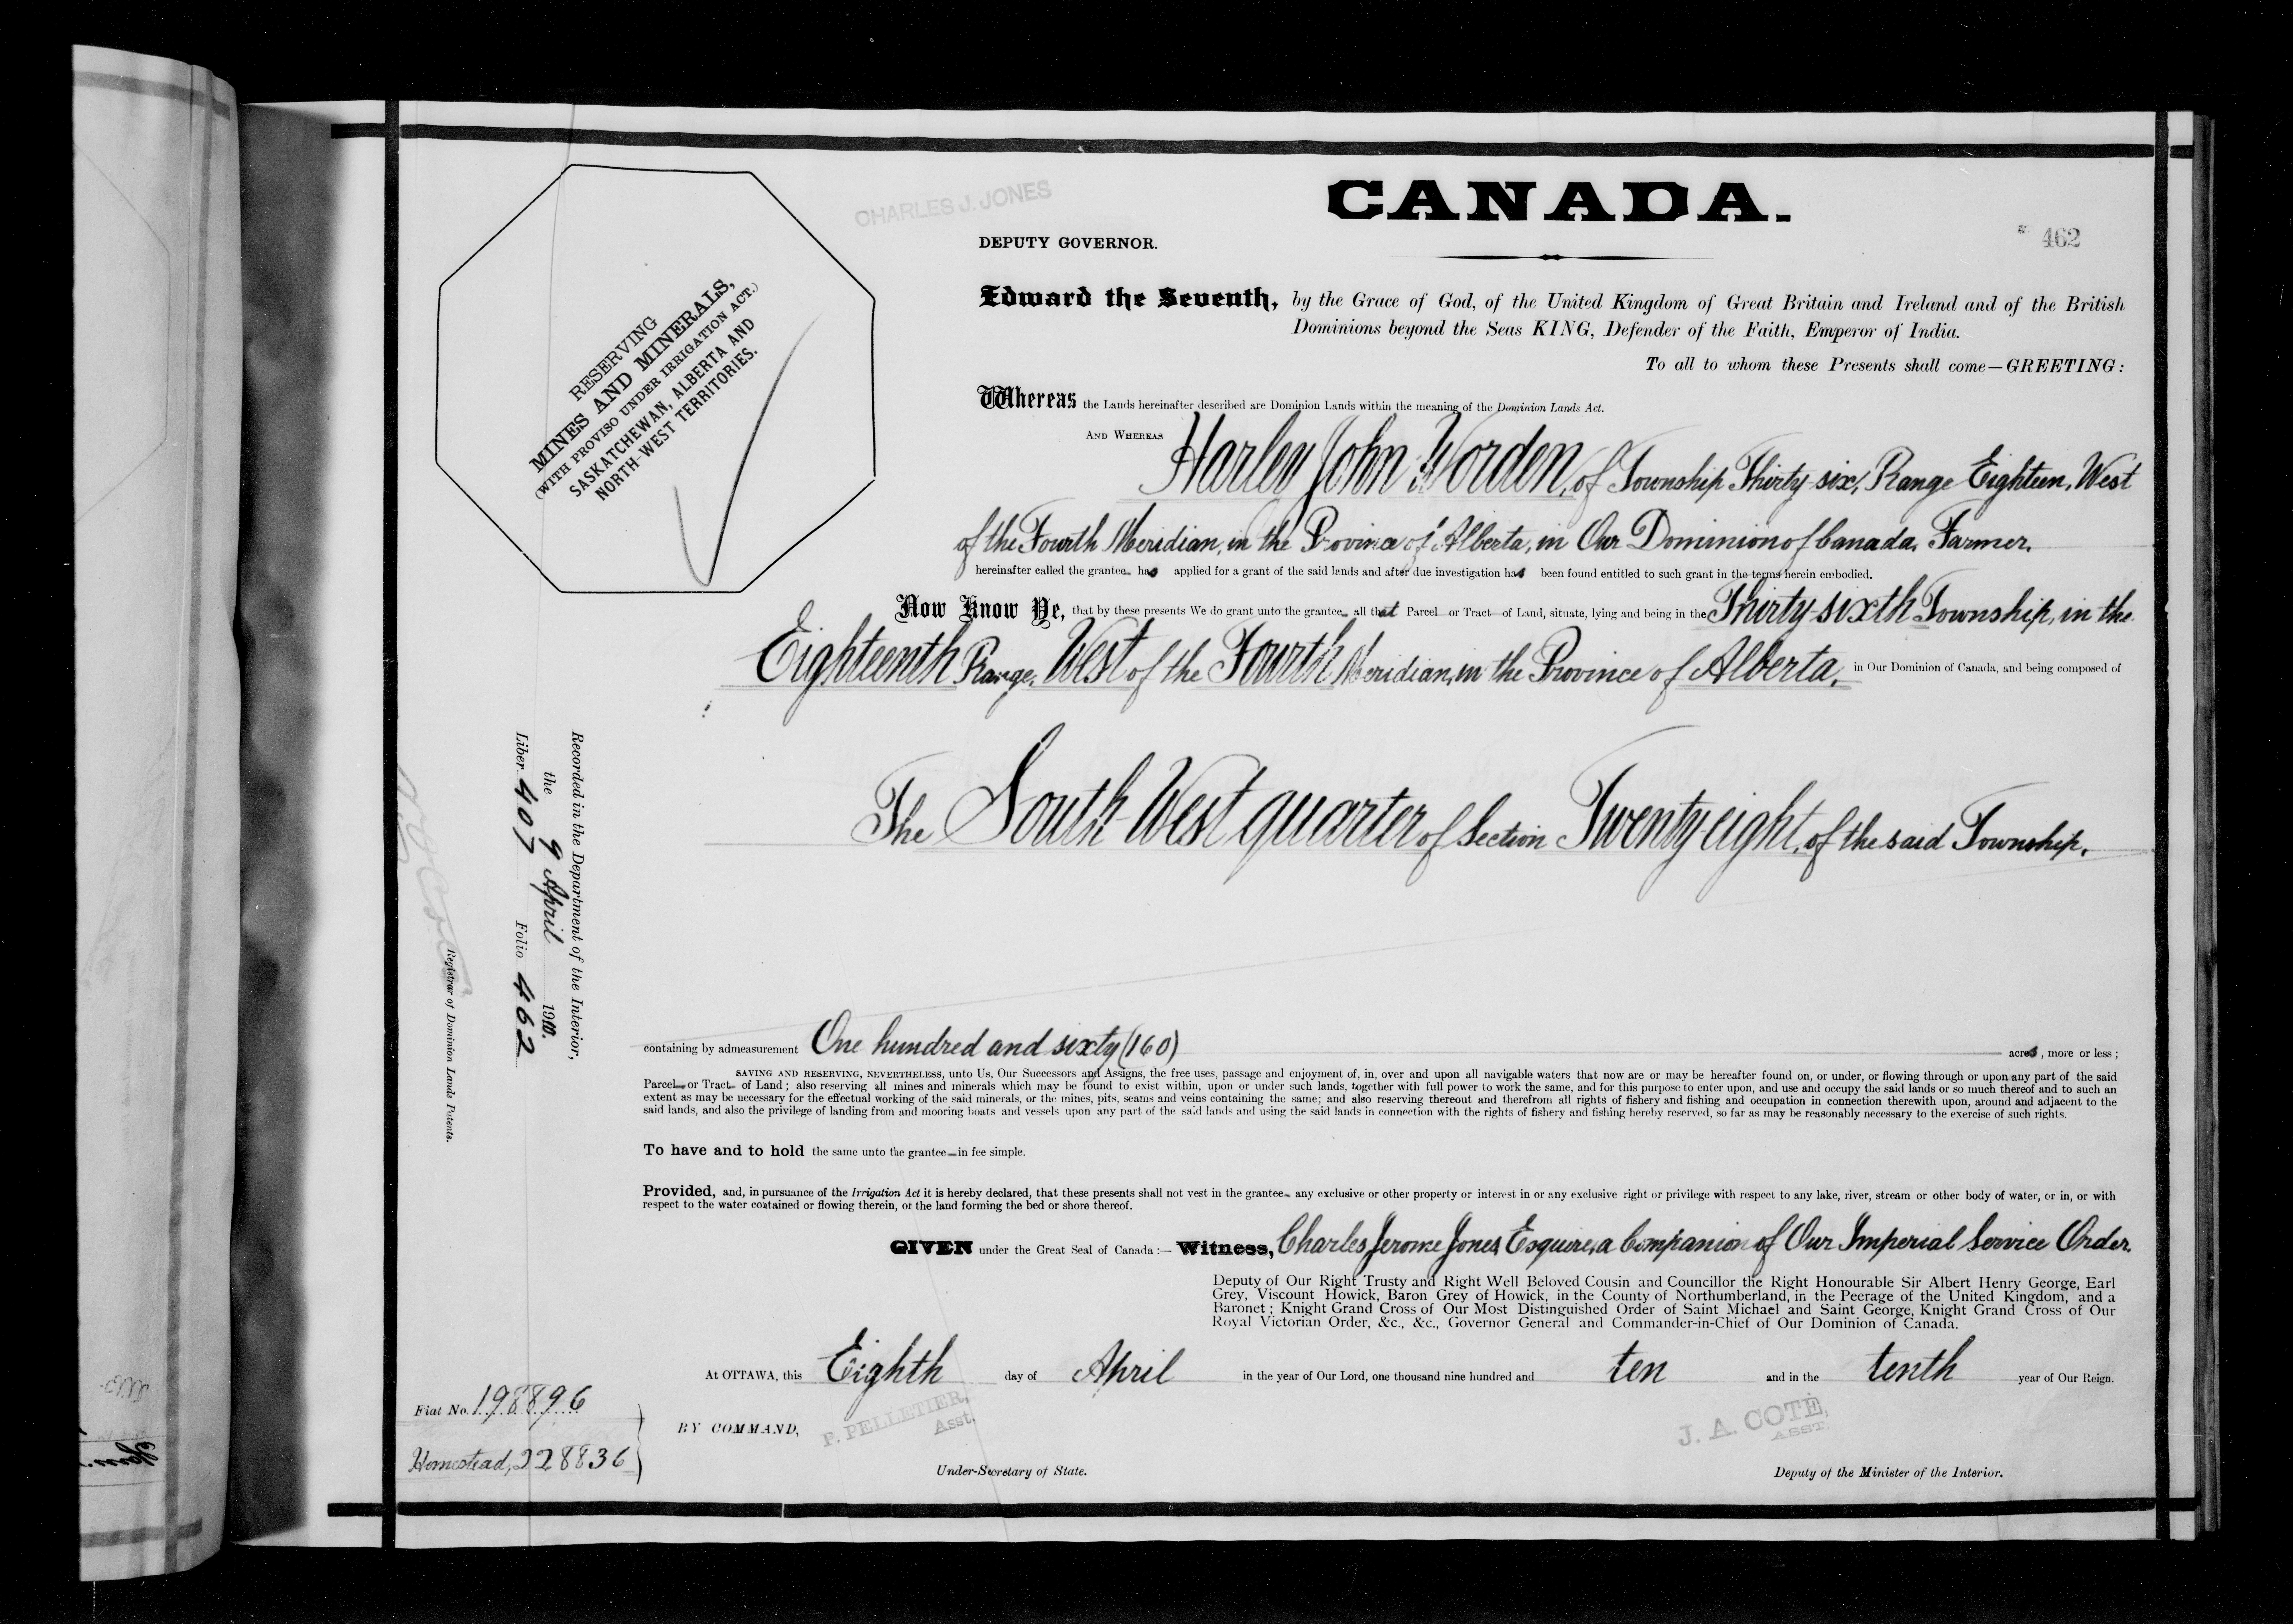 CHARLES J. JONES
CANADA.
DEPUTY GOVERNOR.
462
RESERVING
MINES AND MINERALS,
(WITH PROVISO UNDER IRRIGATION ACT.)
SASKATCHEWAN, ALBERTA AND
NORTH-WEST TERRITORIES.
Edward the Seventh, by the Grace of God, of the United Kingdom of Great Britain and Ireland and of the British
Dominions beyond the Seas KING, Defender of the Faith, Emperor of India.
To all to whom these Presents shall come—GREETING:
Whereas the Lands hereinafter described are Dominion Lands within the meaning of the Dominion Lands Act.
AND WHEREAS Harley John Worden, of Township Thirty-six, Range Eighteen, West
of the Fourth Meridian, in the Province of Alberta, in Our Dominion of Canada, Farmer,
hereinafter called the grantee has applied for a grant of the said lands and after due investigation has been found entitled to such grant in the terms herein embodied.
Now Know Ye, that by these presents We do grant unto the grantee all that Parcel or Tract of Land, situate, lying and being in the Thirty-sixth Township, in the
Eighteenth Range, West of the Fourth Meridian, in the Province of Alberta, in Our Dominion of Canada, and being composed of
The South West quarter of Section Twenty-eight, of the said Township,
Recorded in the Department of the Interior,
the 9 April 1910.
Liber 407 Folio 462
Registrar of Dominion Lands Patents.
containing by admeasurement One hundred and sixty (160) acres, more or less;
SAVING AND RESERVING, NEVERTHELESS, unto Us, Our Successors and Assigns, the free uses, passage and enjoyment of, in, over and upon all navigable waters that now are or may be hereafter found on, or under, or flowing through or upon any part of the said
Parcel or Tract of Land; also reserving all mines and minerals which may be found to exist within, upon or under such lands, together with full power to work the same, and for this purpose to enter upon, and use and occupy the said lands or so much thereof and to such an
extent as may be necessary for the effectual working of the said minerals, or the mines, pits, seams and veins containing the same; and also reserving thereout and therefrom all rights of fishery and fishing and occupation in connection therewith upon, around and adjacent to the
said lands, and also the privilege of landing from and mooring boats and vessels upon any part of the said lands and using the said lands in connection with the rights of fishery and fishing hereby reserved, so far as may be reasonably necessary to the exercise of such rights.
To have and to hold the same unto the grantee in fee simple.
Provided, and, in pursuance of the Irrigation Act it is hereby declared, that these presents shall not vest in the grantee any exclusive or other property or interest in or any exclusive right or privilege with respect to any lake, river, stream or other body of water, or in, or with
respect to the water contained or flowing therein, or the land forming the bed or shore thereof.
GIVEN under the Great Seal of Canada:— Witness, Charles Jerome Jones, Esquire, a Companion of Our Imperial Service Order,
Deputy of Our Right Trusty and Right Well Beloved Cousin and Councillor the Right Honourable Sir Albert Henry George, Earl
Grey, Viscount Howick, Baron Grey of Howick, in the County of Northumberland, in the Peerage of the United Kingdom, and a
Baronet; Knight Grand Cross of Our Most Distinguished Order of Saint Michael and Saint George, Knight Grand Cross of Our
Royal Victorian Order, &c., &c., Governor General and Commander-in-Chief of Our Dominion of Canada.
At OTTAWA, this Eighth day of April in the year of Our Lord, one thousand nine hundred and ten and in the tenth year of Our Reign.
Fiat No. 198896
Homestead, 228836
BY COMMAND,
P. PELLETIER,
Asst.
J. A. COTÉ,
ASST.
Under-Secretary of State.
Deputy of the Minister of the Interior.